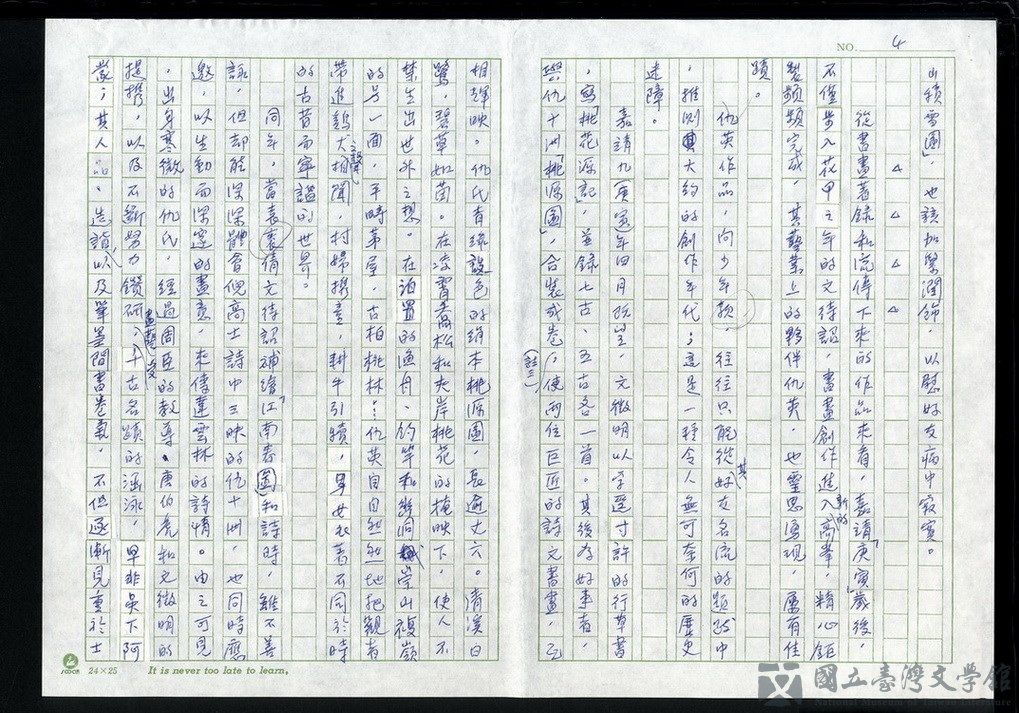 NO. 4
山積雪圖」，也該加緊潤飾，以慰好友病中寂寞。
△ △ △ △
從書畫著錄和流傳下來的作品來看，嘉靖「庚寅」歲後，
不僅步入花甲之年的文待詔，書畫創作進入新的高峯，精心鉅
製頻頻完成，其藝業上的夥伴仇英，也靈思湧現，屢有佳
蹟。
仇英作品，向少年款，往往只能從其好友名流的題跋中
，推測其大約的創作年代；這是一種令人無可奈何的歷史
迷障。
嘉靖九（庚寅）年四月既望，文徵明以字逕寸許的行草書
，寫「桃花源記」，並錄七古、五古各一首。其後為好事者，
與仇十洲「桃源圖」，合裝成卷（註三）；使兩位巨匠的詩文書畫，互
相輝映。仇氏青綠設色的絹本桃源圖，長逾丈六。清溪白
鷺，碧草如茵。在凌霄喬松和夾岸桃花的掩映下，使人不
禁生出世外之想。在泊置的漁舟、釣竿和幾洞崇山複嶺
的另一面，平疇茅屋，古柏桃林…仇英自自然然地把觀者
帶進雞犬之聲相聞，村婦携壺，耕牛引犢，男女衣著不同於時
的古昔而寧謐的世界。
同年，當袁褧倩文待詔補繪「江南春圖」和詩時，雖不善
詠，但却能深深體會倪高士詩中三昧的仇十洲，也同時應
邀，以生動而深邃的畫意，來傳達雲林的詩情。由之可見
，出身寒微的仇氏，經過周臣的教導、唐伯虎和文徵明的
提携，以及不斷努力鑽研畫藝，受千古名蹟的涵泳，早非吳下阿
蒙；其人品、造詣，以及筆墨間書卷氣，不但逐漸見重於士
24×25 It is never too late to learn.
國立臺灣文學館
National Museum of Taiwan Literature